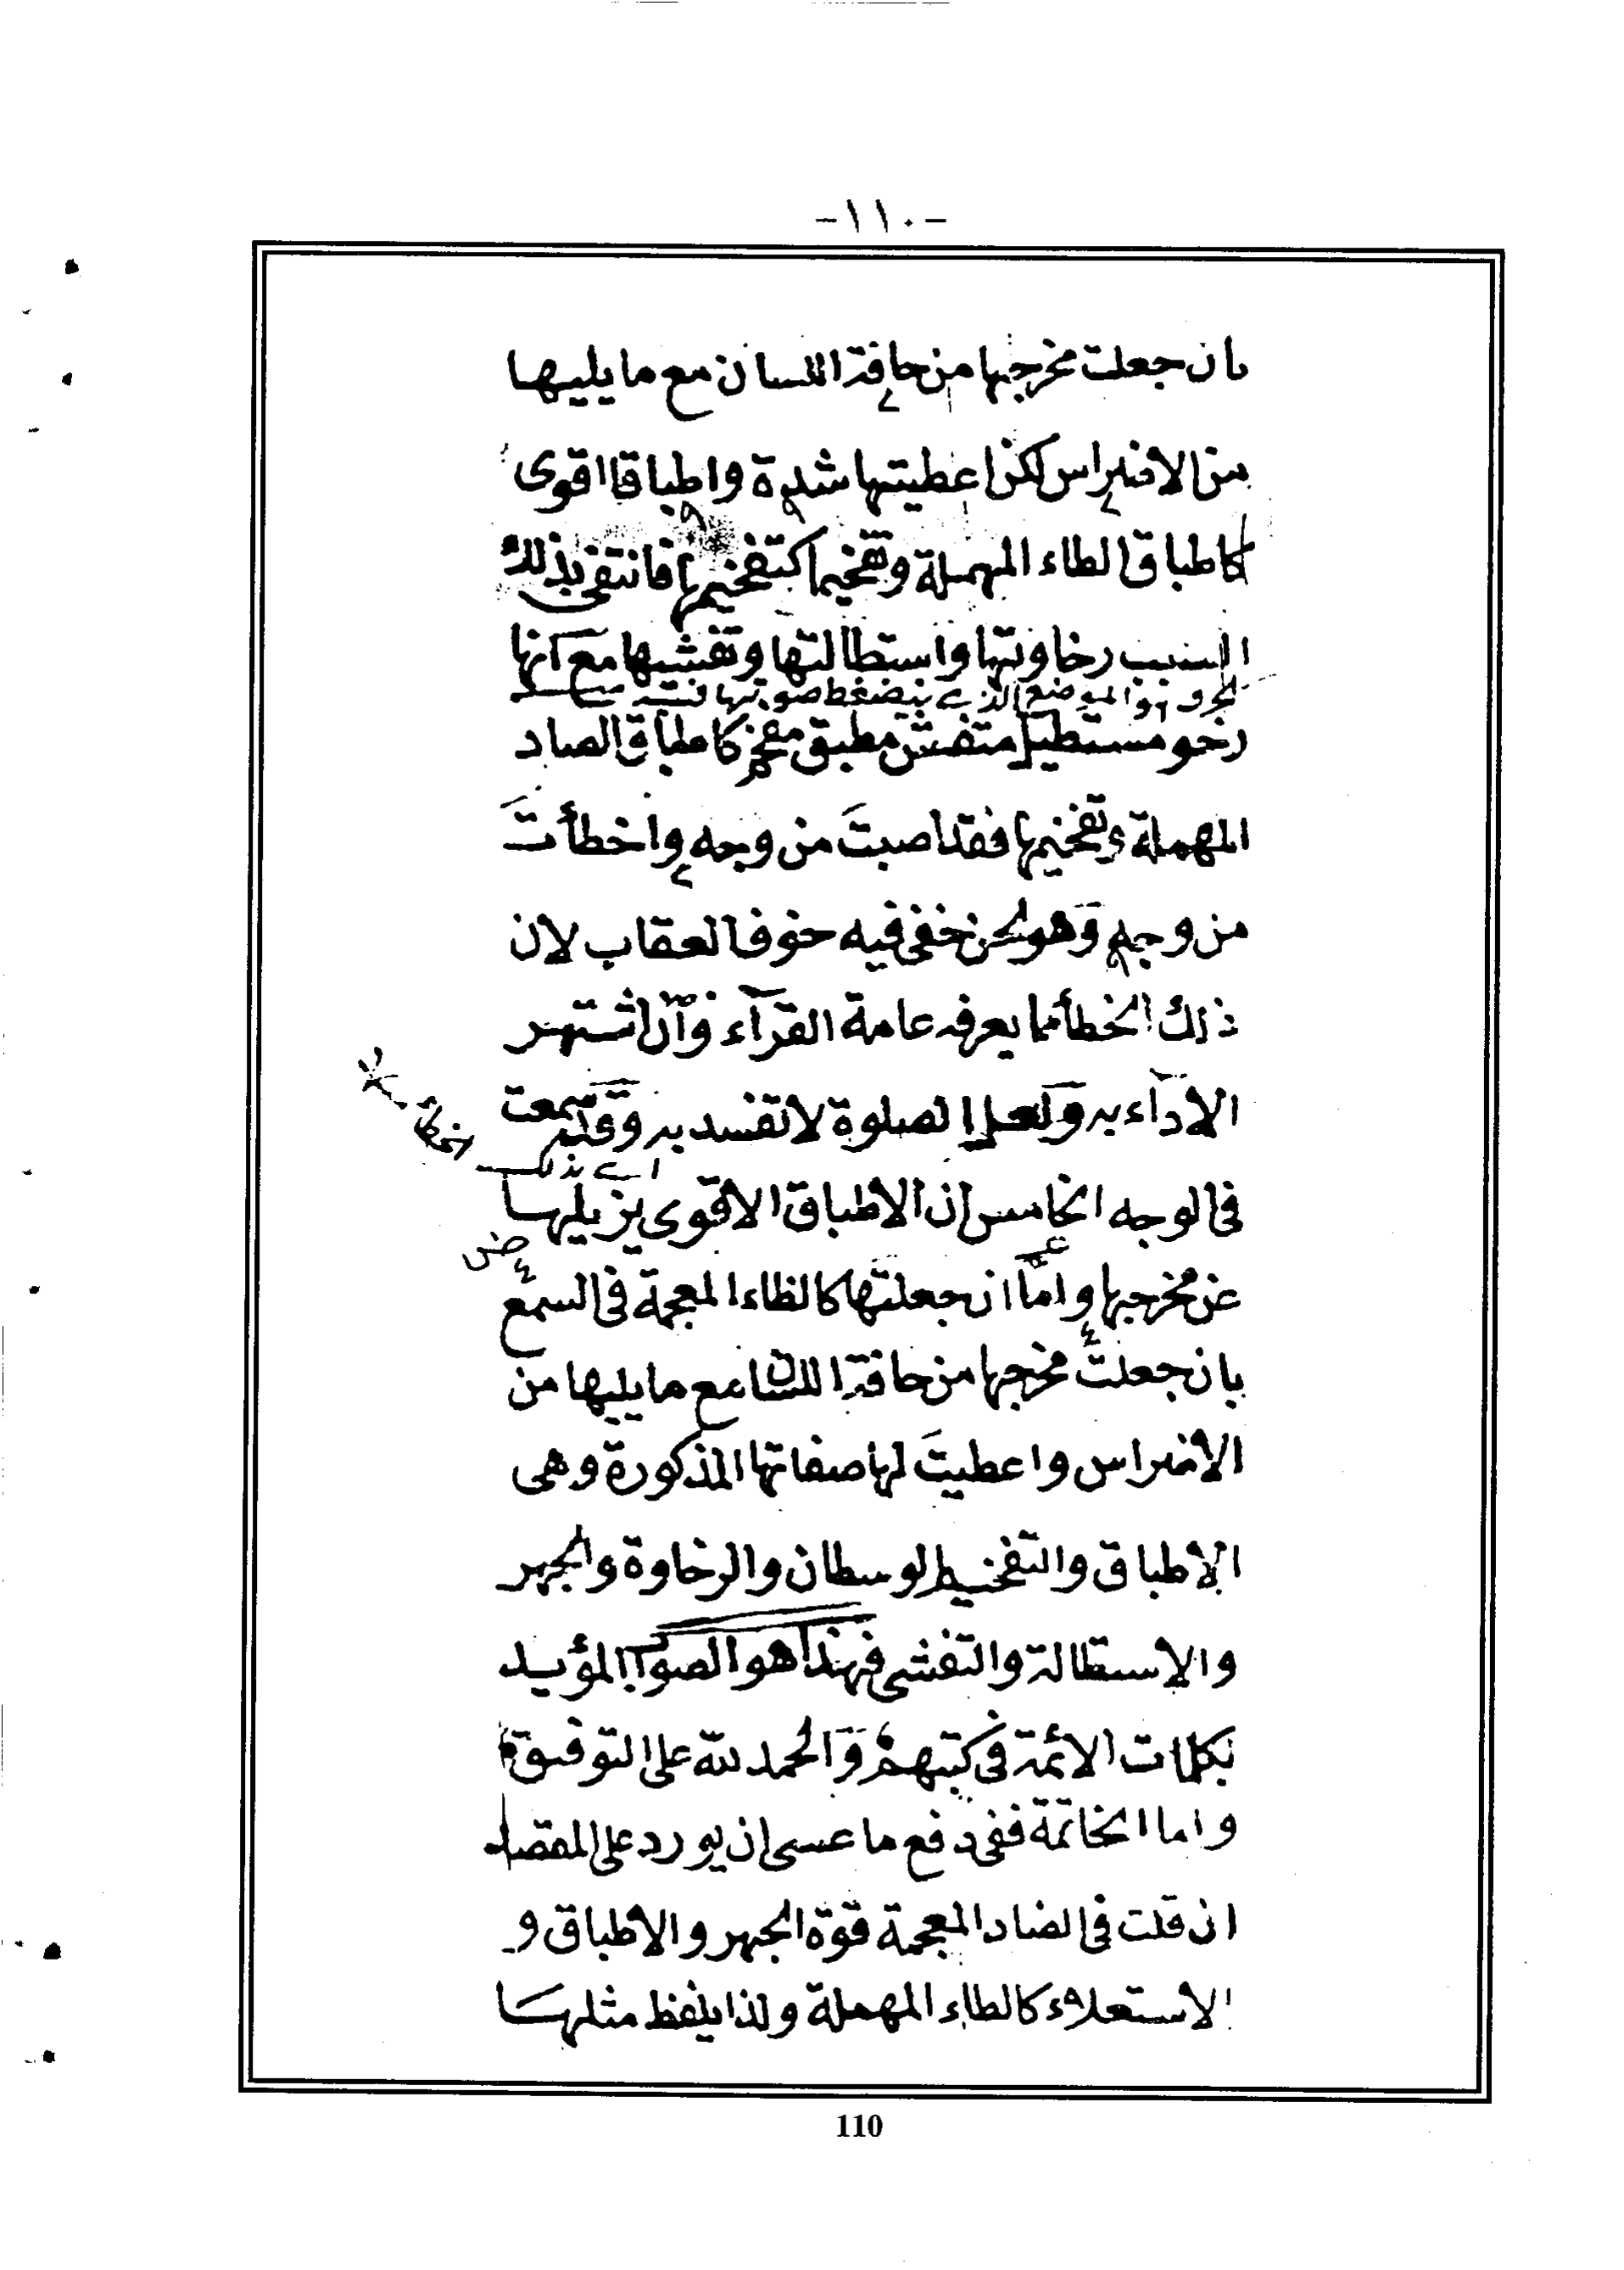 -١١٠-
بان جعلت مخرجها من حافة اللسان مع ما يليها
من الاضراس لكن اعطيتها شدة واطباقا اقوى
كاطباق الطاء المهملة وتفخيما كتفخيمها فانتفى بذلك
السبب رخاوتها واستطالتها وتفشيها مع انها
الموضع الذي ينضغط صوتها
رخو مستطيل متفش مطبق مفخم كاطباق الصاد
المهملة وتفخيمها فقد اصبتَ من وجه واخطأتَ
من وجه وهو لحن خفى فيه خوف العقاب لان
ذلك الخطأ مما يعرفه عامة القرآء وآن اشتهر
الادآء به ولعل الصلوة لا تفسد به وقد سمعت
اے بذلك
خطأ
فى الوجه الخامس ان الاطباق الاقوى يزيلها
ض
عن مخرجها واما ان جعلتها كالظاء المعجمة فى السمع
بان جعلت مخرجها من حافة اللسان مع ما يليها من
الاضراس واعطيتَ لها صفاتها المذكورة وهى
الاطباق والتفخيم الوسطان والرخاوة والجهر
والاستطالة والتفشى فهذا هو الصواب المؤيد
بكلمات الائمة فى كتبهم والحمد لله على التوفيق
واما الخاتمة ففى دفع ما عسى ان يورد على المقصد
ان قلت فى الضاد المعجمة قوة الجهر والاطباق و
الاستعلاء كالطاء المهملة ولذا يلفظ مثلها
110